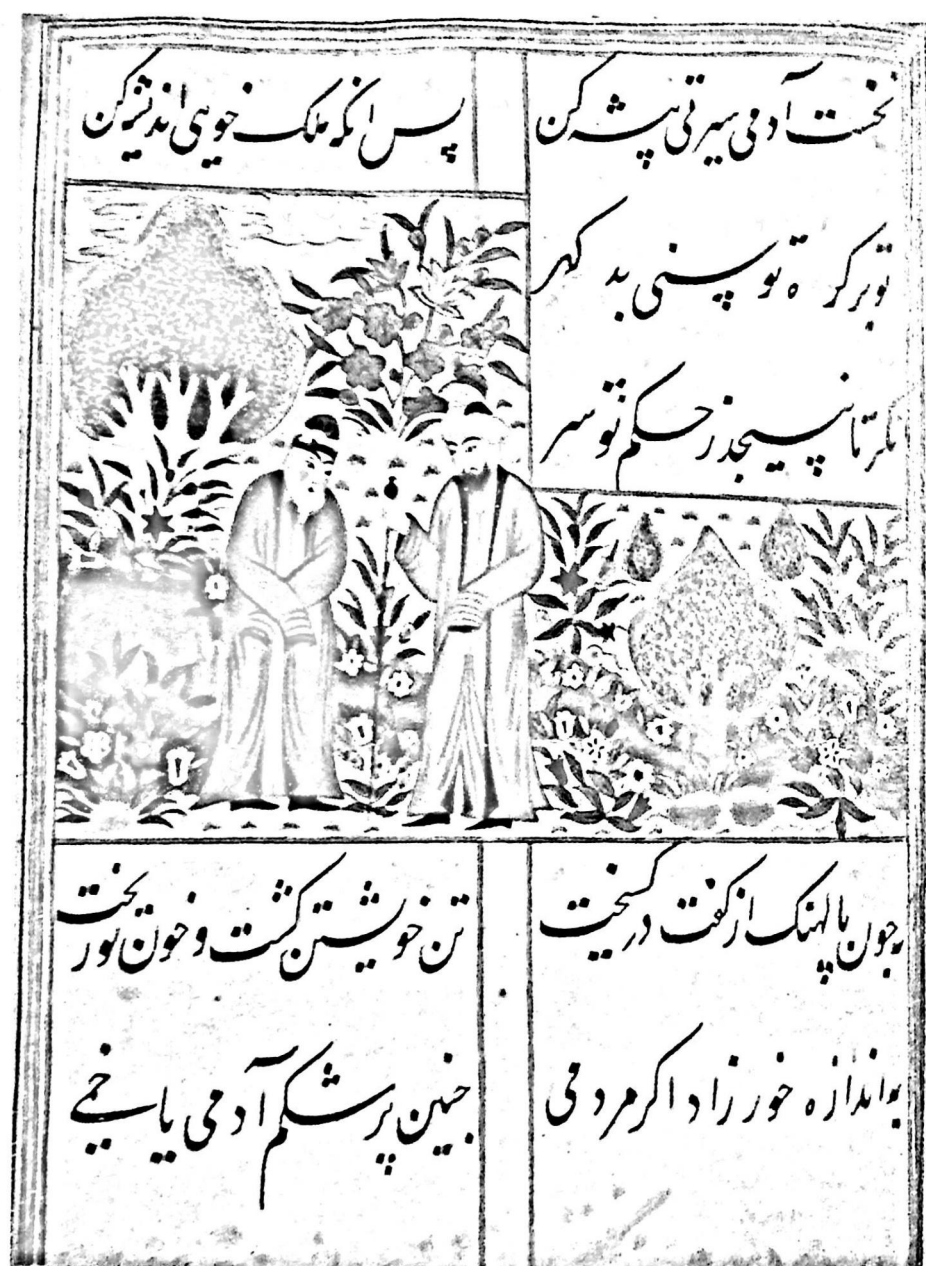 نخست آدمی سیرتی پیشه کن
پس انکه ملک خویی اندیشه کن
تو بر کره توسنی بد کهر
نکر تا نپیچد ز حکم تو سر
جون پالهنک از کفت در کسیخت
تن خویشتن کشت و خون تو ریخت
به اندازه خور زاد اکر مردمی
جنین پر شکم آدمی یا خمی